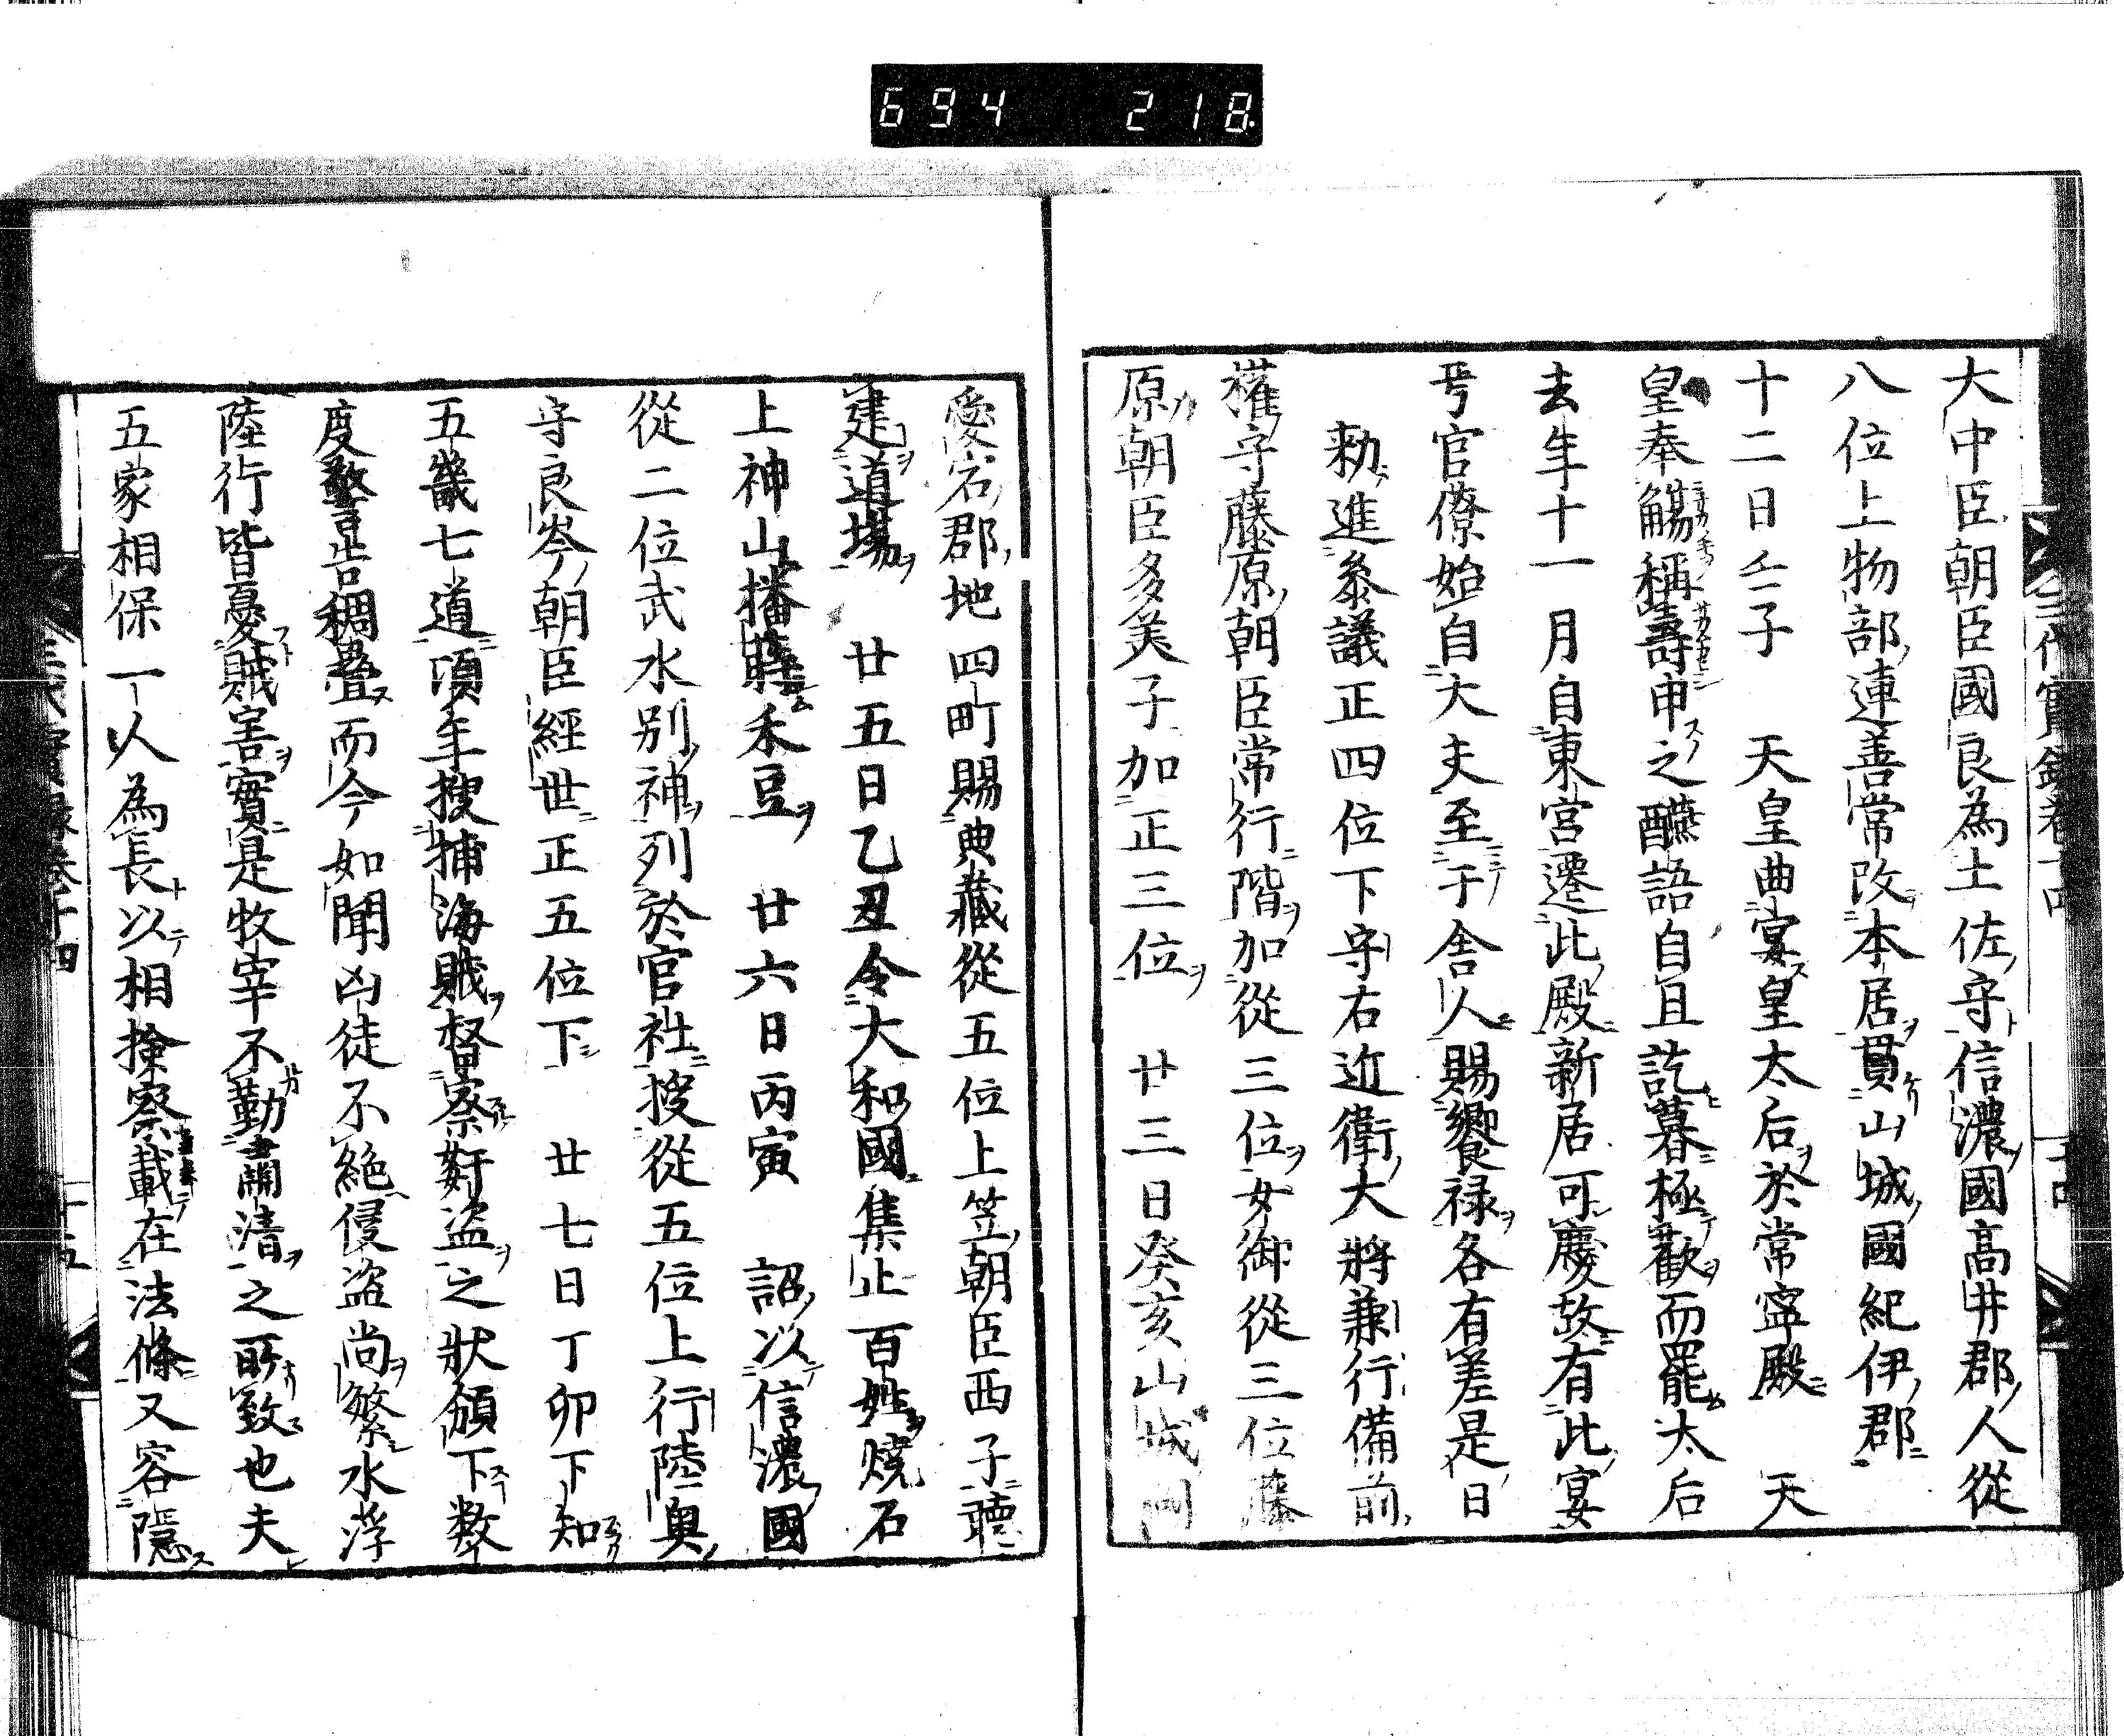 694 218
大中臣朝臣國良為土佐守信濃國高井郡人從
八位上物部連善常改本居貫山城國紀伊郡
十二日壬子 天皇曲宴皇太后於常寧殿 天
皇奉觴稱壽申之醼語自且訖暮極歡而罷太后
去年十一月自東宮遷此殿新居可慶故有此宴
焉官僚始自大夫至于舍人賜饗祿各有差是日
勑進叅議正四位下守右近衛大將兼行備前
權守藤原朝臣常行階加從三位女御從三位藤
原朝臣多美子加正三位 廿三日癸亥山城國
愛宕郡地四町賜典藏從五位上笠朝臣西子聽
建道場 廿五日乙丑令大和國集止百姓燒石
上神山播蒔禾豆 廿六日丙寅 詔以信濃國
從二位武水別神列於官社授從五位上行陸奧
守良岑朝臣經世正五位下 廿七日丁卯下知
五畿七道頃年搜捕海賊督察奸盜之狀頒下数
度警告稠疊而今如聞凶徒不絶侵盜尚繁水浮
陸行皆憂賊害實是牧宰不勤肅清之所致也夫
五家相保一人為長以相撿察載在法條又容隱